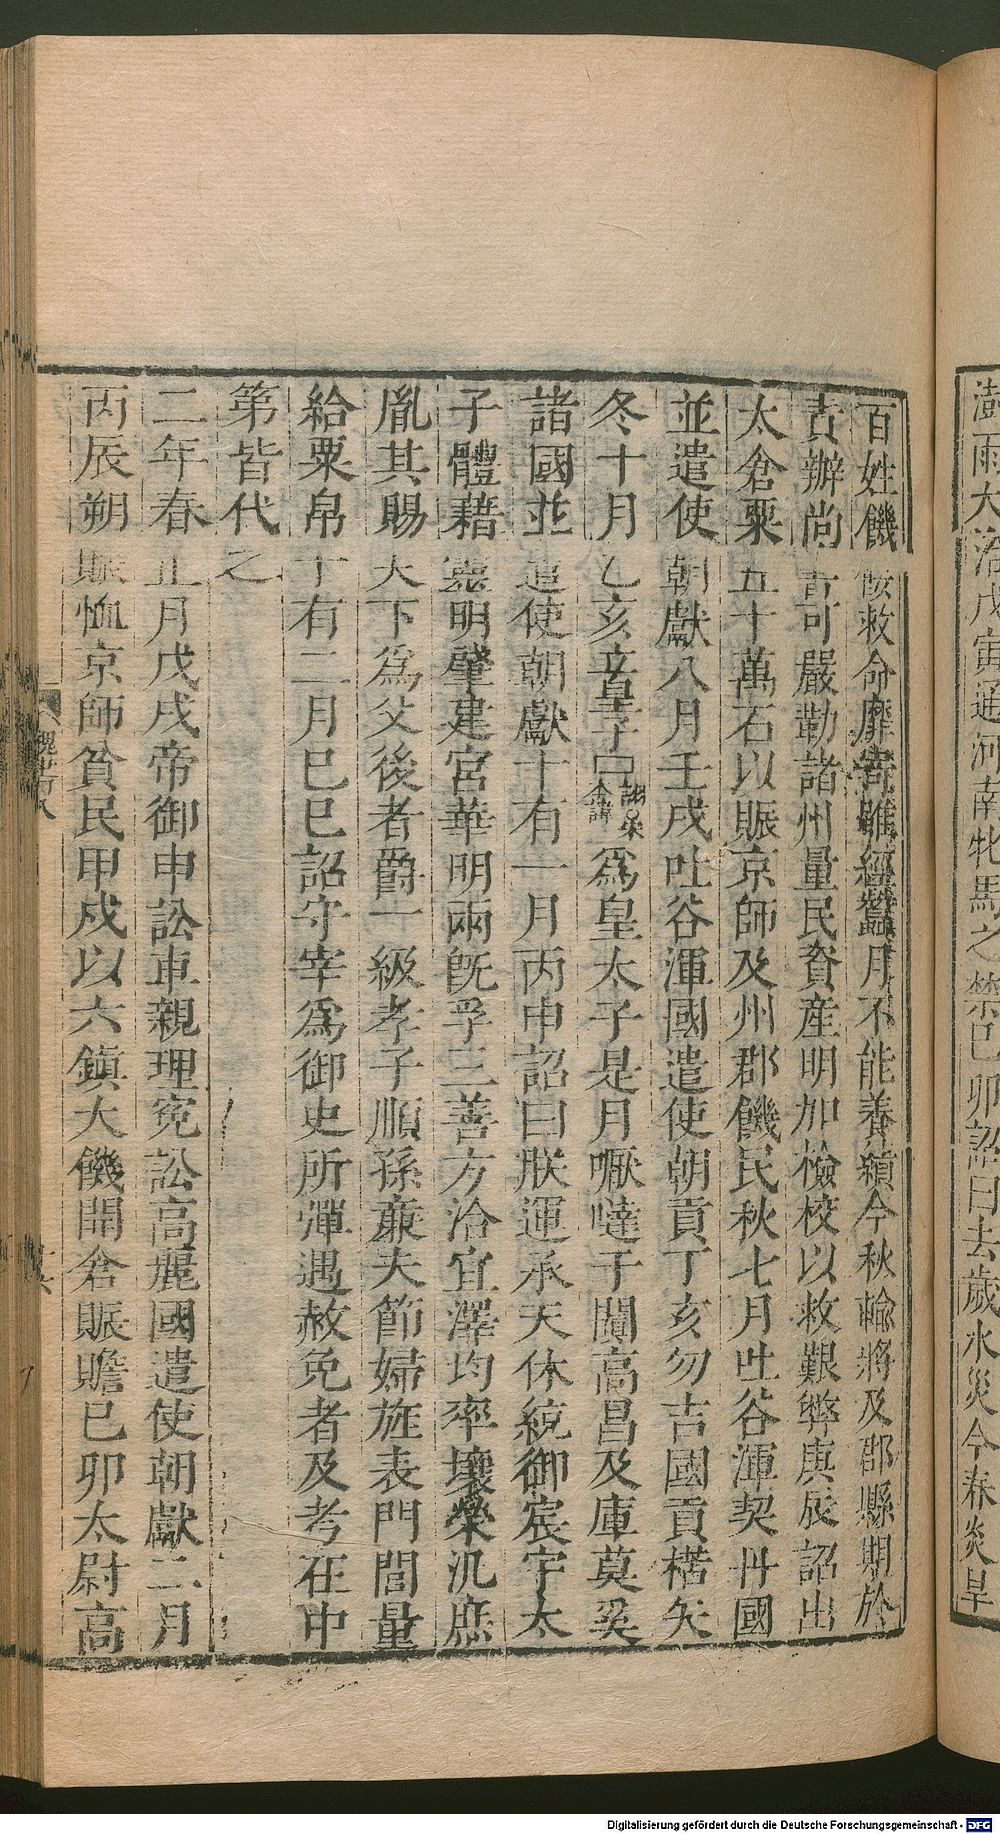 澍雨大洽戊寅通河南牝馬之禁己卯詔曰去歲水災今春炎旱
百姓饑餒救命靡寄雖經蠶月不能養績今秋輸將及郡縣期於
責辦尚書可嚴勒諸州量民資產明加檢校以救艱弊庚辰詔出
太倉粟五十萬石以賑京師及州郡饑民秋七月吐谷渾契丹國
並遣使朝獻八月壬戌吐谷渾國遣使朝貢丁亥勿吉國貢楛矢
冬十月乙亥立皇子為皇太子是月嚈噠于闐高昌及庫莫奚
諸國並遣使朝獻十有一月丙申詔曰朕運承天休統御宸宇太
子體藉靈明肇建宮華明兩既孚三善方洽宜澤均率壤榮汎庶
胤其賜天下為父後者爵一級孝子順孫廉夫節婦旌表門閭量
給粟帛十有二月巳巳詔守宰為御史所彈遇赦免者及考在中
第皆代之
二年春正月戊戌帝御申訟車親理冤訟高麗國遣使朝獻二月
丙辰朔賑恤京師貧民甲戌以六鎮大饑開倉賑贍己卯太尉高
Digitalisierung gefördert durch die Deutsche Forschungsgemeinschaft - DFG